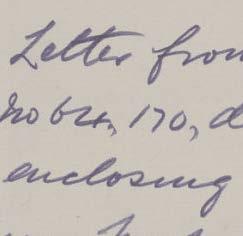 Letter from
No 64,170, d
enclosing